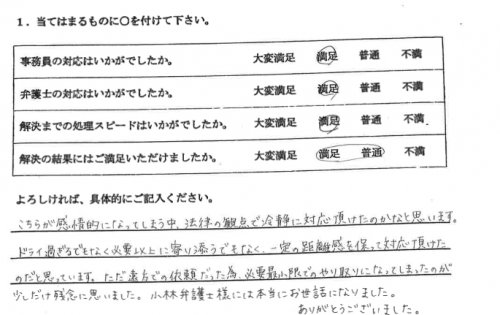 1．当てはまるものに○を付けて下さい。
事務員の対応はいかがでしたか。 大変満足 満足 普通 不満
弁護士の対応はいかがでしたか。 大変満足 満足 普通 不満
解決までの処理スピードはいかがでしたか。 大変満足 満足 普通 不満
解決の結果にはご満足いただけましたか。 大変満足 満足 普通 不満
よろしければ、具体的にご記入ください。
こちらが感情的になってしまう中、法律の観点で冷静に対応頂けたのかなと思います。
ドライ過ぎるでもなく必要以上に寄り添うでもなく、一定の距離感を保って対応頂けた
のだと思っています。ただ遠方での依頼だった為、必要最小限でのやり取りになってしまったのが
少しだけ残念に思いました。小林弁護士様には本当にお世話になりました。
ありがとうございました。